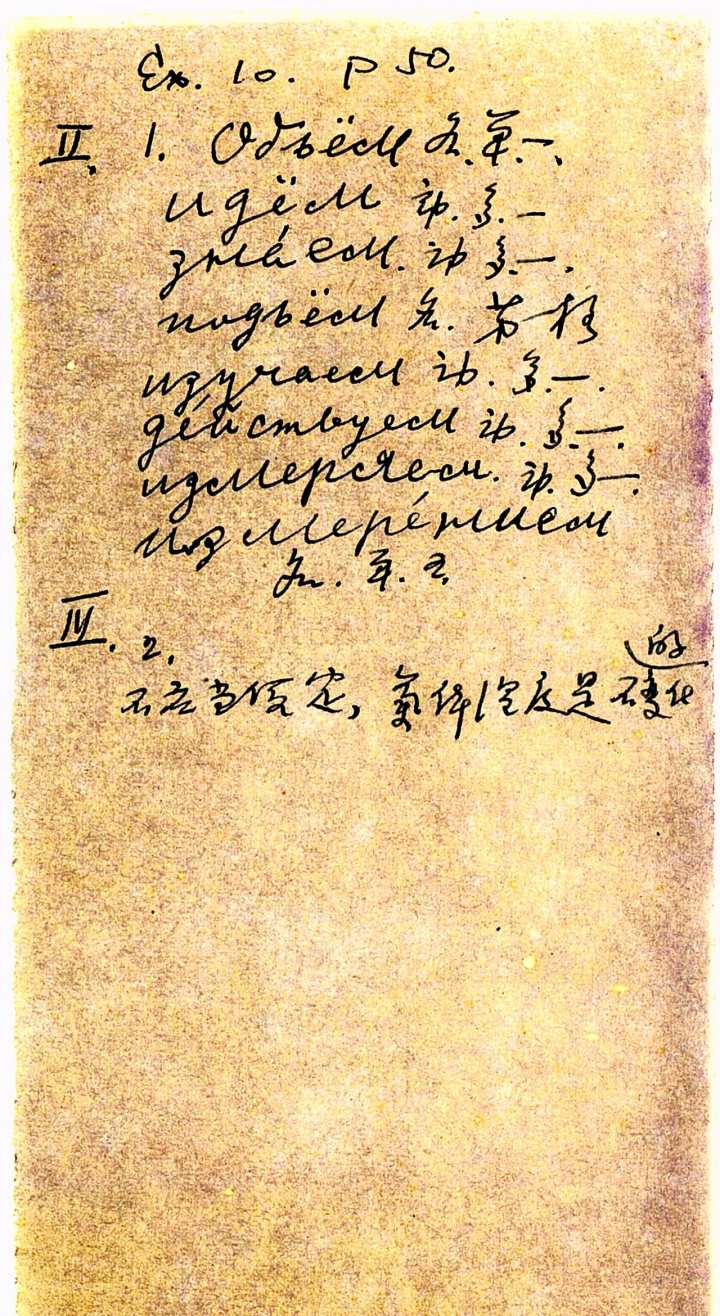 Ex. 10. P 50.
II. 1. Объём 名.单.一.
идём 动.多.一
знáем. 动 多.一.
подъём 名.
изучаем 动. 多.一.
действуем 动. 多.一.
измеряем. 动. 多一.
измерéнием
名. 单.
IV. 2.
不应当假定, 气体温度是不变化的